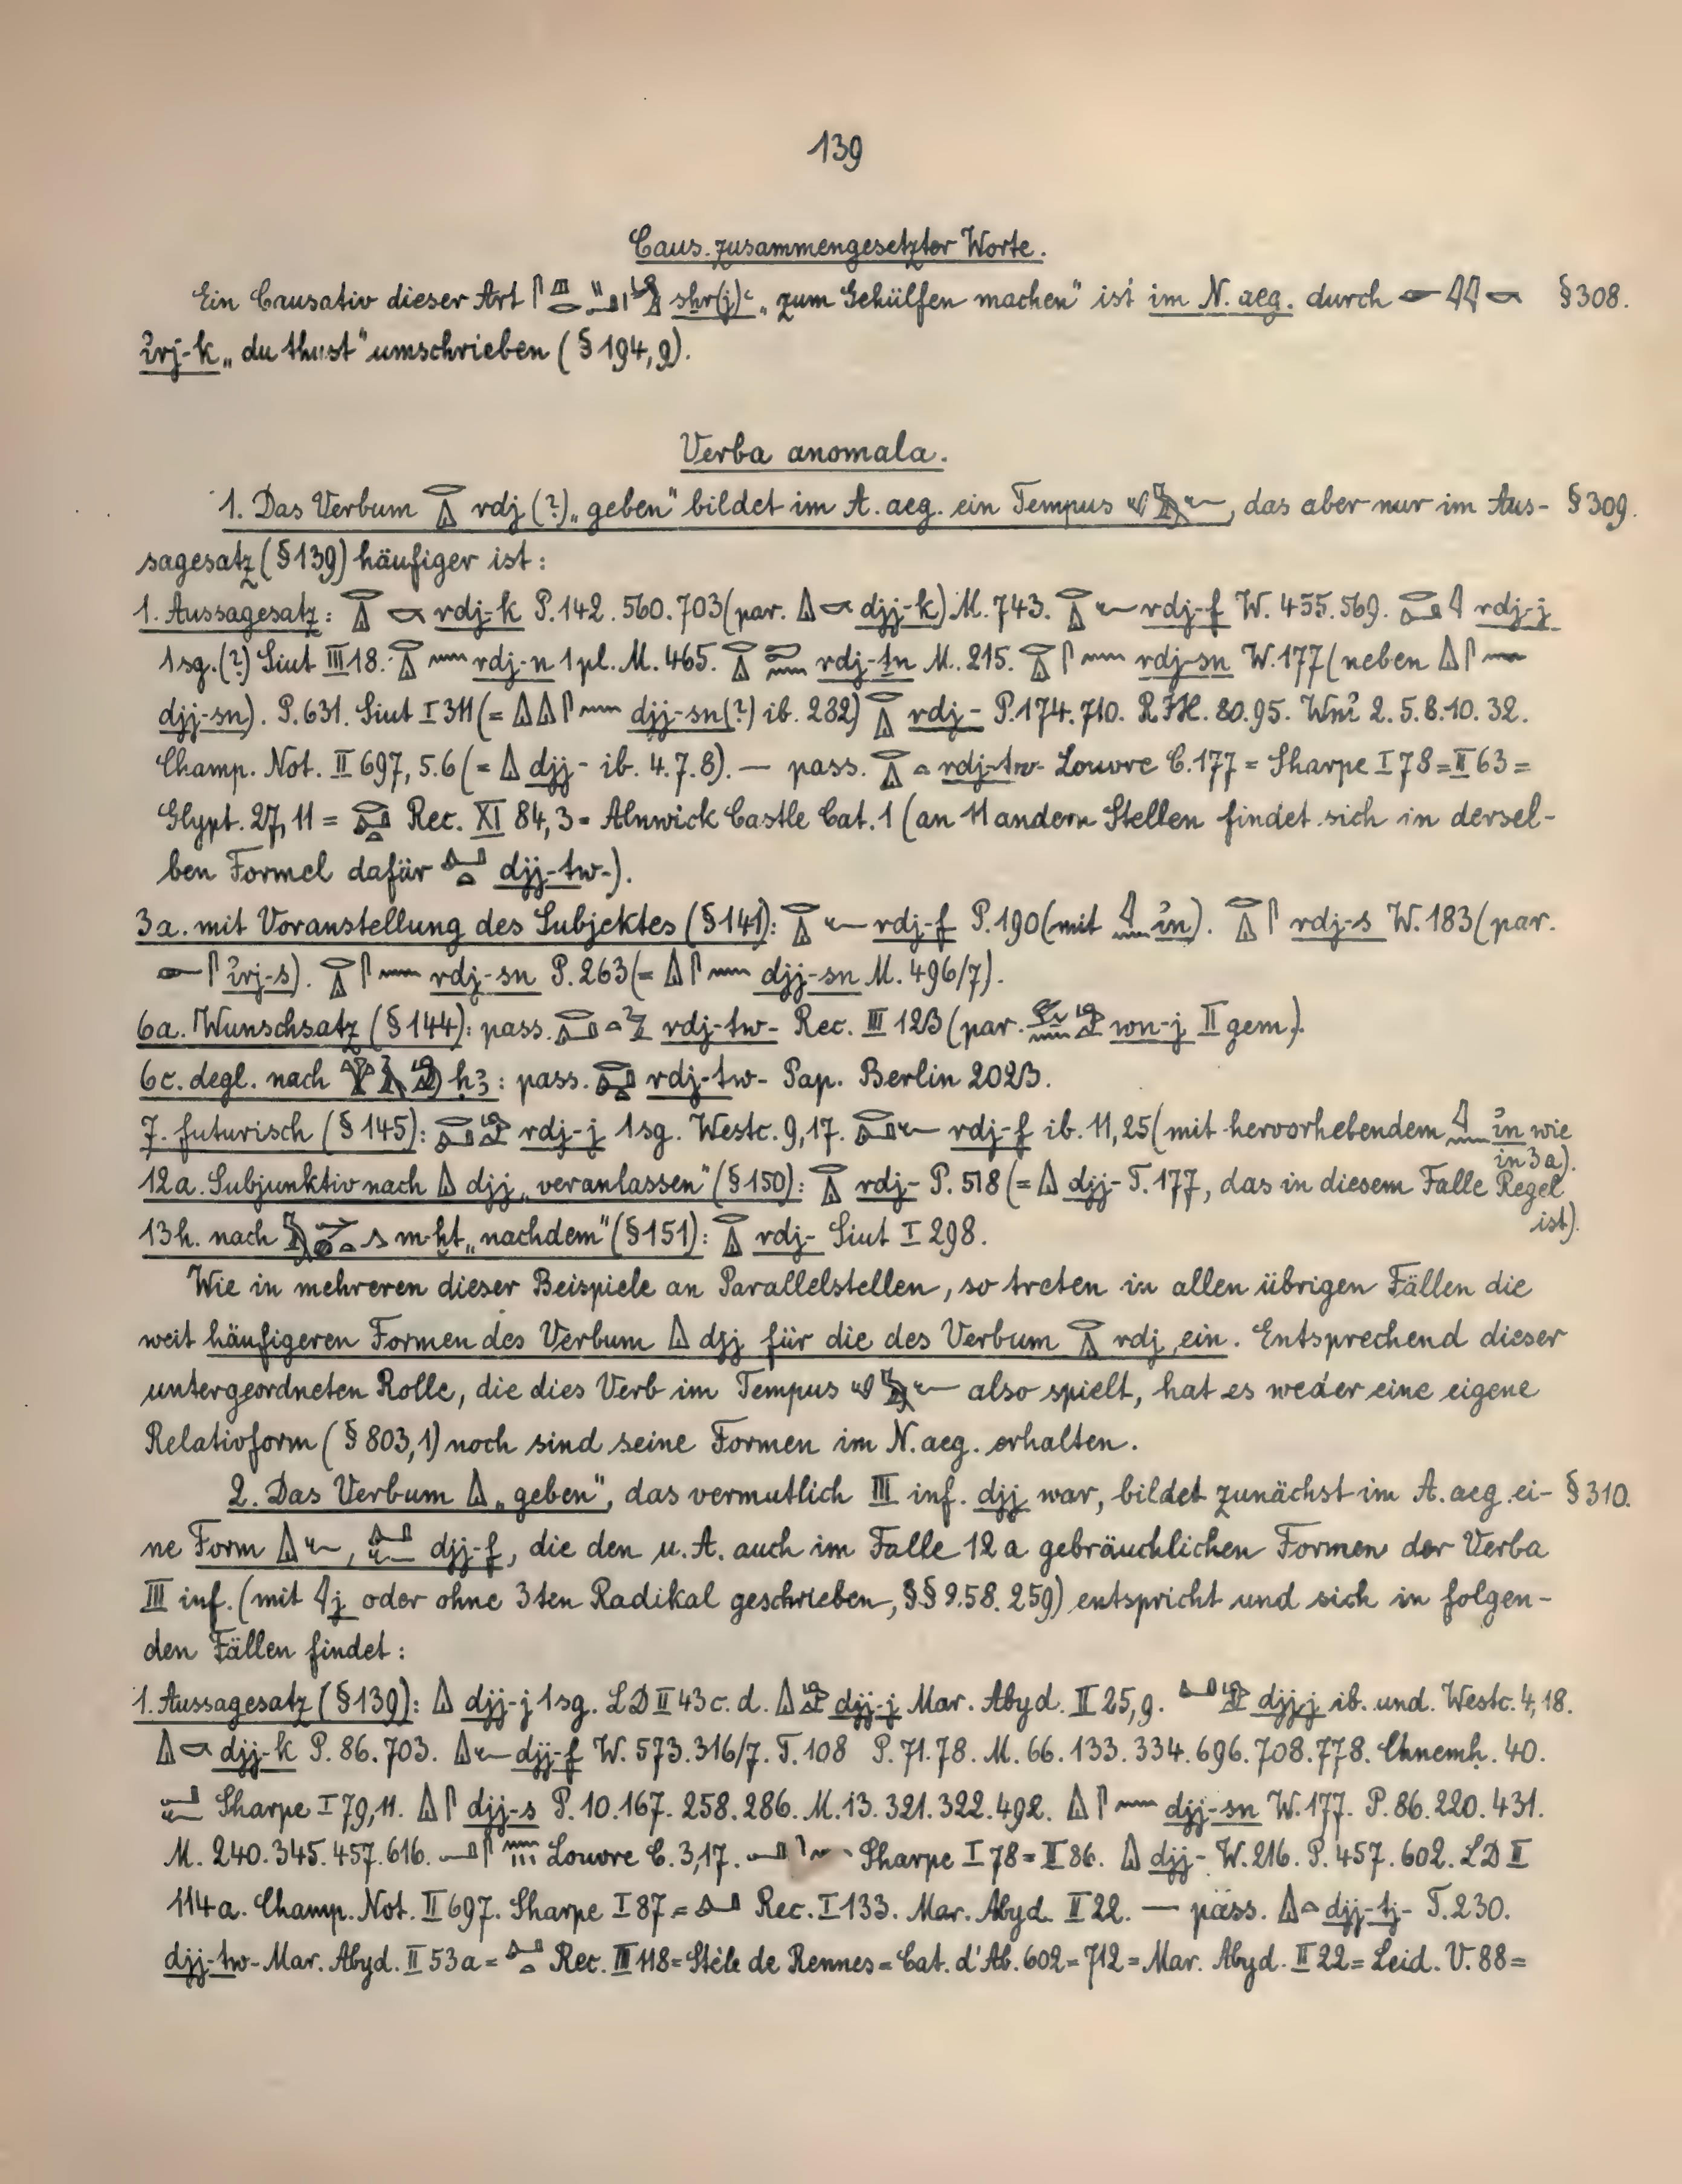 139
Caus. zusammengesetzter Worte.
Ein Causativ dieser Art sḫr(j)ꜥ „zum Gehülfen machen" ist im N. aeg. durch § 308.
ỉrj-k „du thust" umschrieben (§ 194, 9).
Verba anomala.
1. Das Verbum rdj (?) „geben" bildet im A. aeg. ein Tempus , das aber nur im Aus- § 309.
sagesatz (§ 139) häufiger ist:
1. Aussagesatz: rdj-k P. 142. 560. 703 (par. djj-k) M. 743. rdj-f W. 455. 569. rdj-j
1sg. (?) Siut III 18. rdj-n 1pl. M. 465. rdj-ṯn M. 215. rdj-sn W. 177 (neben
djj-sn). P. 631. Siut I 311 (= djj-sn (?) ib. 282) rdj- P. 174. 710. RIH. 80. 95. Wnỉ 2. 5. 8. 10. 32.
Champ. Not. II 697, 5. 6 (= djj - ib. 4. 7. 8). — pass. rdj-tw- Louvre C. 177 = Sharpe I 78 = II 63 =
Glypt. 27, 11 = Rec. XI 84, 3 = Alnwick Castle Cat. 1 (an 11 andern Stellen findet sich in dersel-
ben Formel dafür djj-tw-).
3a. mit Voranstellung des Subjektes (§ 141): rdj-f P. 190 (mit ỉn). rdj-s W. 183 (par.
ỉrj-s). rdj-sn P. 263 (= djj-sn M. 496/7).
6a. Wunschsatz (§ 144): pass. rdj-tw- Rec. III 123 (par. wn-j II gem.).
6c. degl. nach ḥꜣ: pass. rdj-tw- Pap. Berlin 2023.
7. futurisch (§ 145): rdj-j 1sg. Westc. 9, 17. rdj-f ib. 11, 25 (mit hervorhebendem ỉn wie
in 3a).
12a. Subjunktiv nach djj „veranlassen" (§ 150): rdj- P. 518 (= djj- T. 177, das in diesem Falle Regel
ist).
13h. nach m-ḫt „nachdem" (§ 151): rdj- Siut I 298.
Wie in mehreren dieser Beispiele an Parallelstellen, so treten in allen übrigen Fällen die
weit häufigeren Formen des Verbum djj für die des Verbum rdj ein. Entsprechend dieser
untergeordneten Rolle, die dies Verb im Tempus also spielt, hat es weder eine eigene
Relativform (§ 803, 1) noch sind seine Formen im N. aeg. erhalten.
2. Das Verbum „geben", das vermutlich III inf. djj war, bildet zunächst im A. aeg. ei- § 310.
ne Form , djj-f, die den u. A. auch im Falle 12a gebräuchlichen Formen der Verba
III inf. (mit j oder ohne 3ten Radikal geschrieben, §§ 258. 259) entspricht und sich in folgen-
den Fällen findet:
1. Aussagesatz (§ 139): djj-j 1sg. LD II 43 c. d. djj-j Mar. Abyd. II 25, 9. djj-j ib. und. Westc. 4, 18.
djj-k P. 86. 703. djj-f W. 573. 316/7. T. 108 P. 71. 78. M. 66. 133. 334. 696. 708. 778. Chnemḥ. 40.
Sharpe I 79, 11. djj-s P. 10. 167. 258. 286. M. 13. 321. 322. 492. djj-sn W. 177. P. 86. 220. 431.
M. 240. 345. 457. 616. Louvre C. 3, 17. Sharpe I 78 = II 86. djj- W. 216. P. 457. 602. LD II
114 a. Champ. Not. II 697. Sharpe I 87 = Rec. I 133. Mar. Abyd. II 22. — pass. djj-tj- T. 230.
djj-tw- Mar. Abyd. II 53 a = Rec. III 118 = Stèle de Rennes = Cat. d'Ab. 602 = 712 = Mar. Abyd. II 22 = Leid. V. 88 =